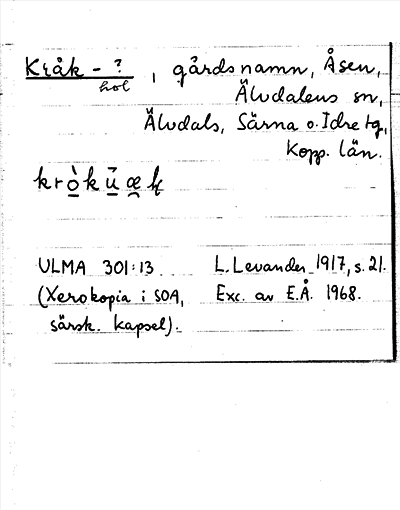 Kråk - ?, gårdsnamn, Åsen,
hol
Älvdalens sn,
Älvdals, Särna o. Idre tg,
Kopp. län.
ULMA 301:13 L. Levander 1917, s. 21.
(Xerokopia i SOA, Exc. av E.Å. 1968.
särsk. kapsel).